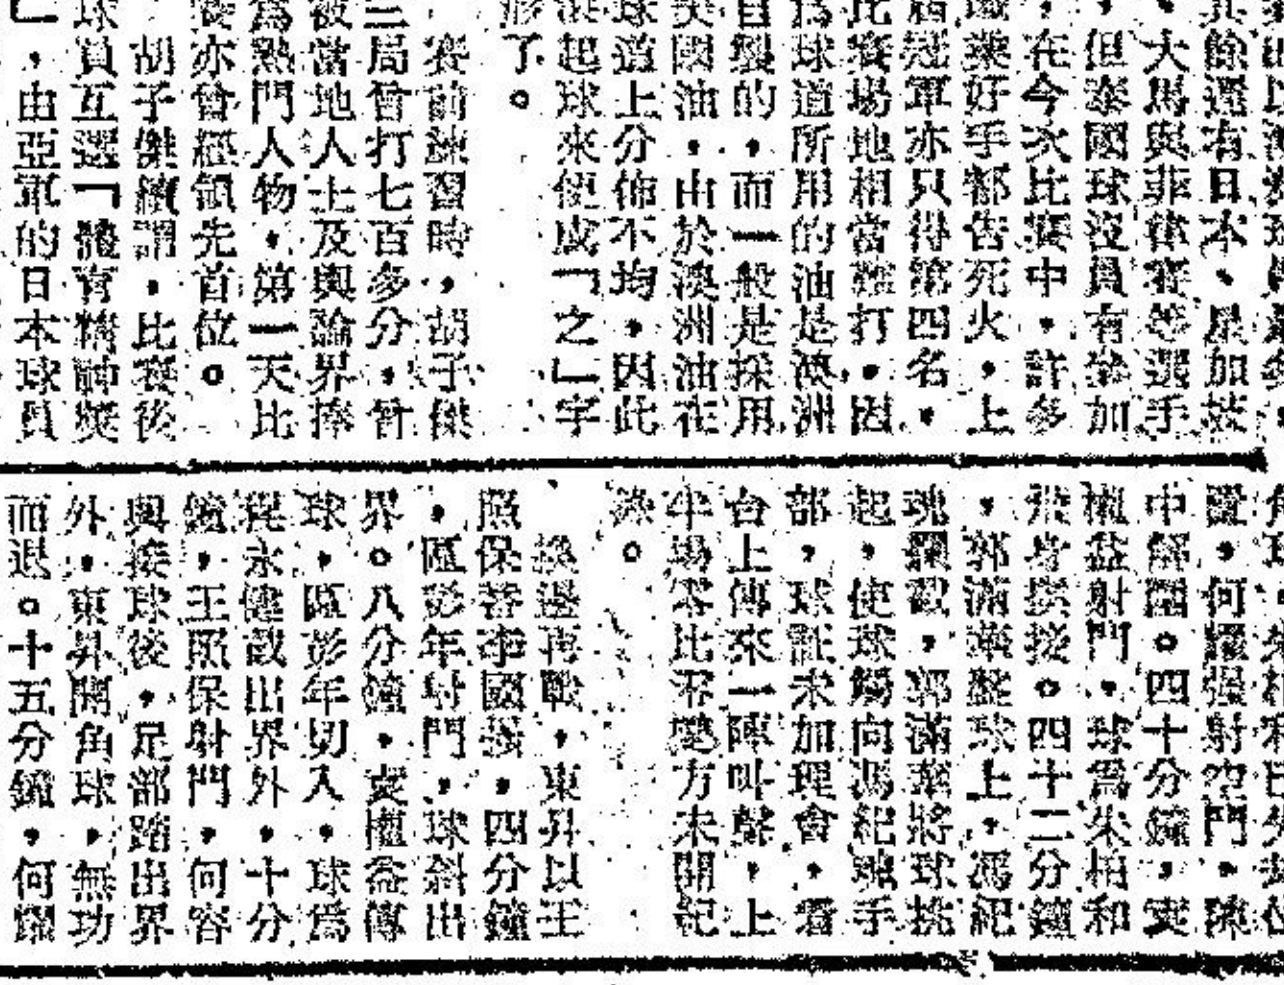 其餘還有日本、星加坡
、大馬與菲律賓等選手
，但泰國球沒員有參加
，在今次比賽中，許多
好手都告死火，上
屆冠軍亦只得第四名，
比賽場地相當難打，因
為球道所用的油是澳洲
自製的，而一般是採用
美國油，由於澳洲油在
球道上分佈不均，因此
滾起球來便成「之」字
形了。
賽前練習時，胡子傑
三局曾打七百多分，曾
被當地人士及輿論界捧
為熱門人物，第一天比
賽亦曾經領先首位。
胡子傑續謂，比賽後
球員互選「體育精神獎
」，由亞軍的日本球員
，何耀強射空門，陳
中解圍。四十分鐘，袁
權益射門，球為朱柏和
飛身撲接。四十二分鐘
，郭滿華盤球上，馮紀
魂攔截，郭滿華將球挑
起，使球觸向馮紀魂手
部，球証未加理會，看
台上傳來一陣叫聲，上
半場零比零雙方未開紀
錄。
換邊再戰，東昇以王
照保替李國援，四分鐘
，區彭年射門，球斜出
界。八分鐘，袁權益傳
球，區彭年切入，球為
程永健截出界外，十分
鐘，王照保射門，何容
興接球後，足部踏出界
外，東昇開角球，無功
而退。十五分鐘，何耀